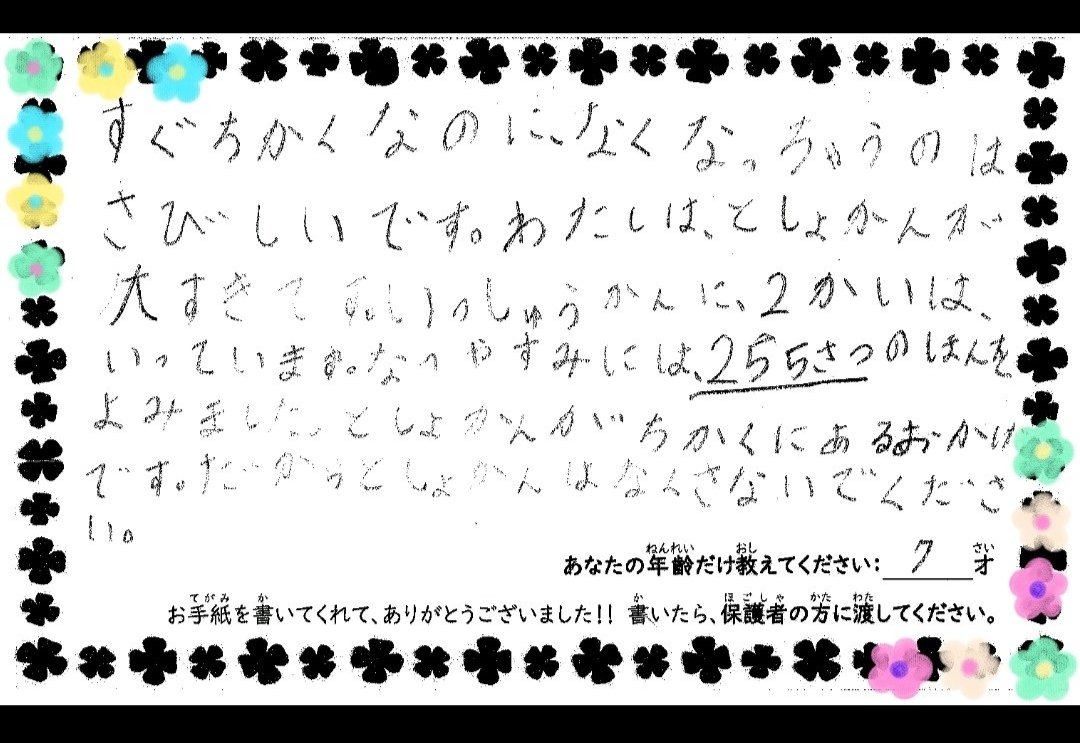 すぐちかくなのに、なくなっちゃうのは
さびしいです。わたしは、としょかんが
大すきです。いっしゅうかんに、2かいは、
いっています。なつやすみには、255さつのほんを
よみました。としょかんがちかくにあるおかげ
です。だからとしょかんはなくさないでくださ
い。
あなたの年齢だけ教えてください：7才
お手紙を書いてくれて、ありがとうございました!! 書いたら、保護者の方に渡してください。